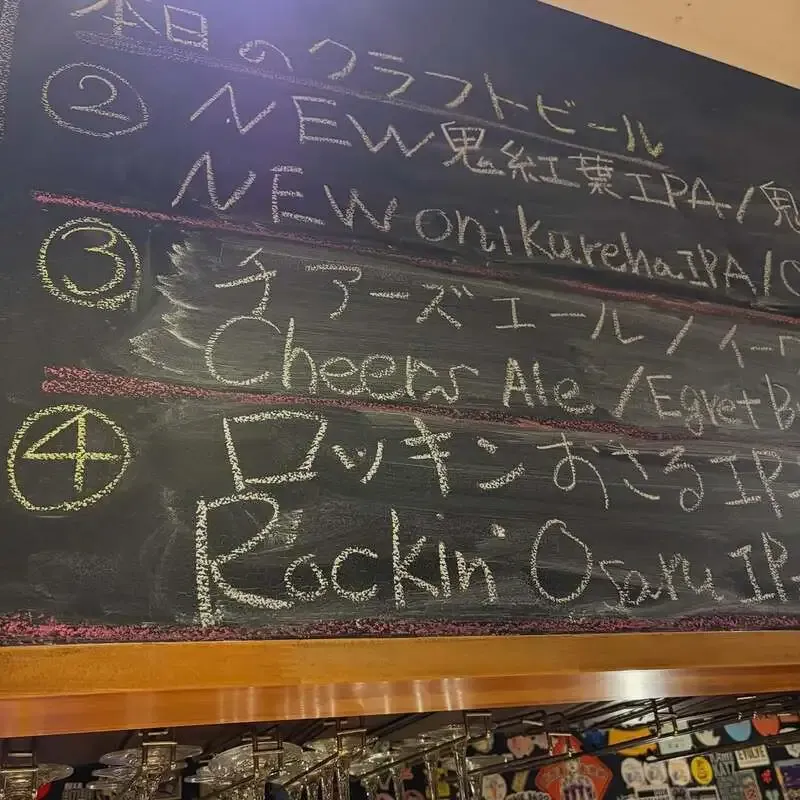 本日のクラフトビール
② NEW鬼紅葉IPA/鬼
NEW onikarehaIPA/
③ チアーズエール/イー
Cheers Ale/Egret B
④ ロッキンおさるIP
Rockin' Osaru IP
EVOLVE